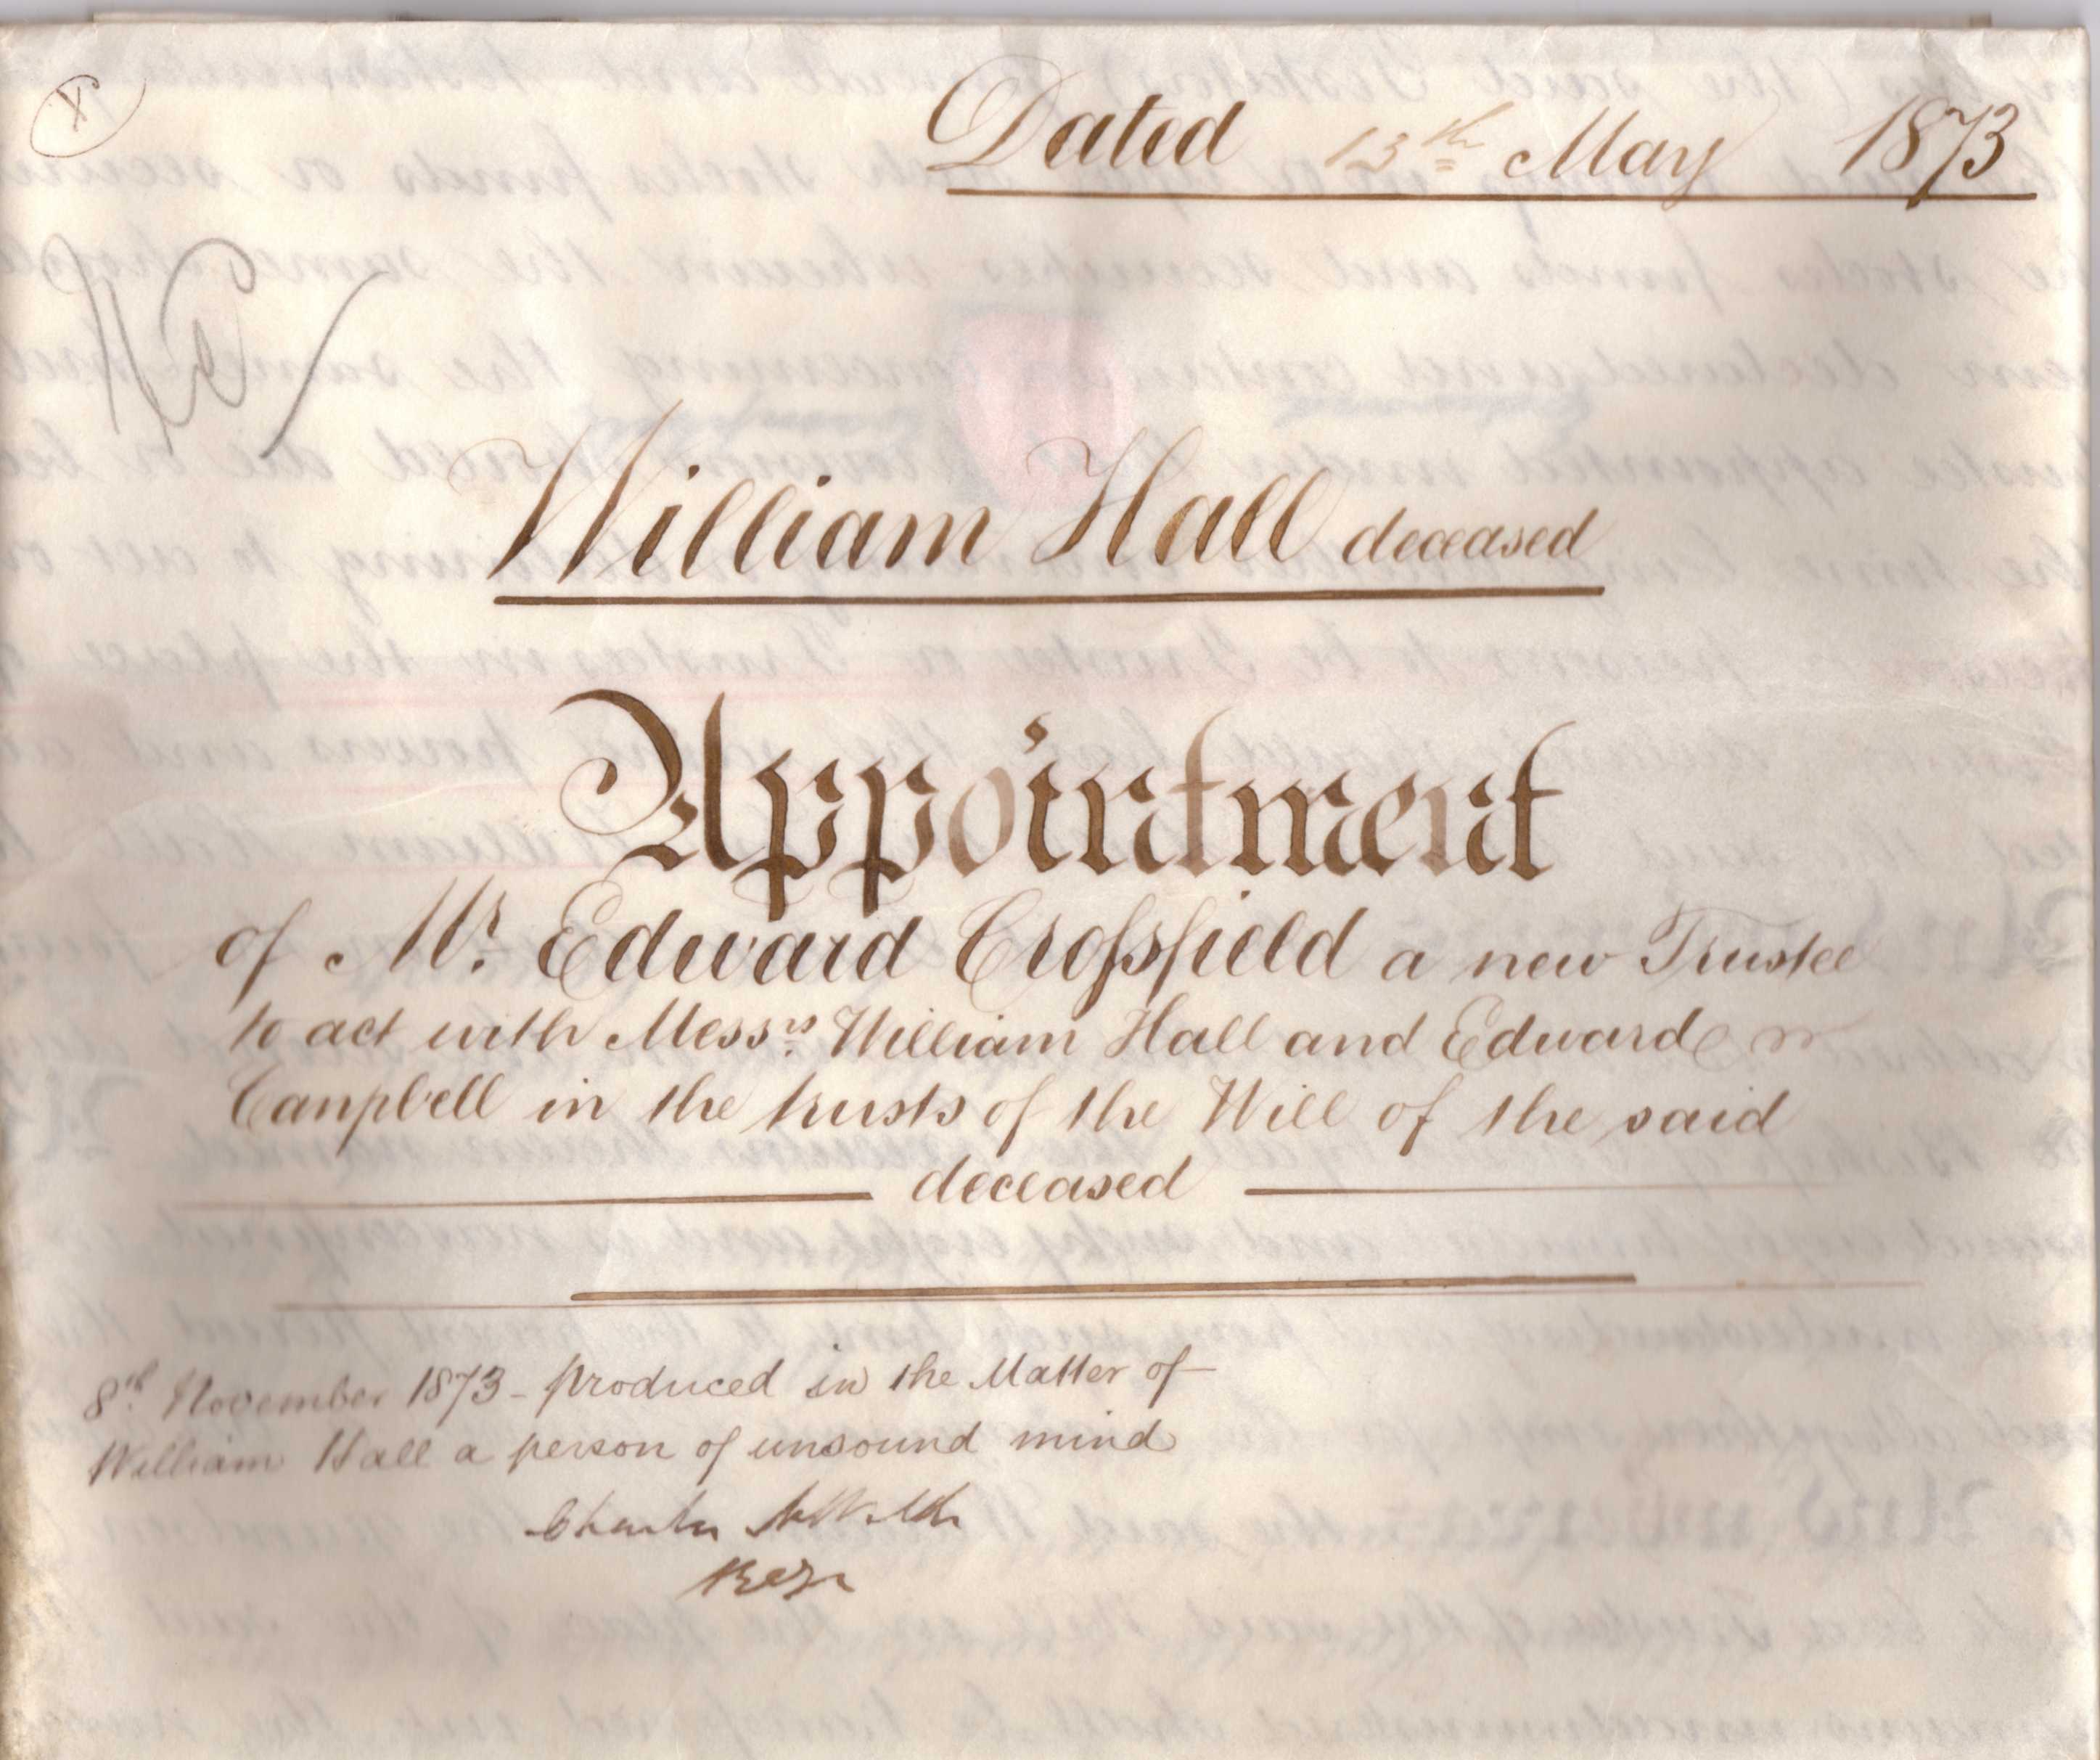 X
Dated 13th May 1873
William Hall deceased
Appointment
of Mr. Edward Crossfield a new Trustee
to act with Messrs. William Hall and Edward
Canpbell in the trusts of the Will of the said
deceased
8th November 1873 - produced in the Matter of
William Hall a person of unsound mind
Charles